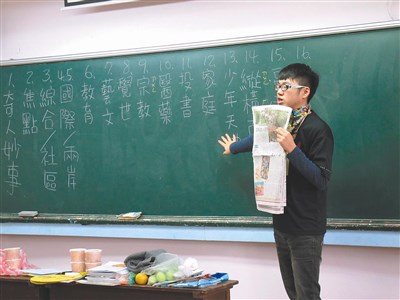 1.奇人妙事
2.焦點
3.綜合/社區
4.5.國際/兩岸
6.教育
7.藝文
8.覺世
9.宗教
10.醫藥
11.投書
12.家庭
13.少年天
14.縱
15.
16.